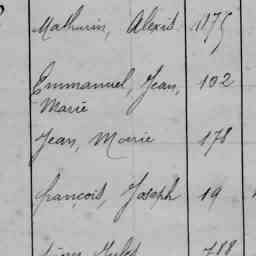 Mathurin, Alexis 1175
Emmanuel, Jean, 102
Marie
Jean, Marie 178
françois, Joseph 19
Jules 788